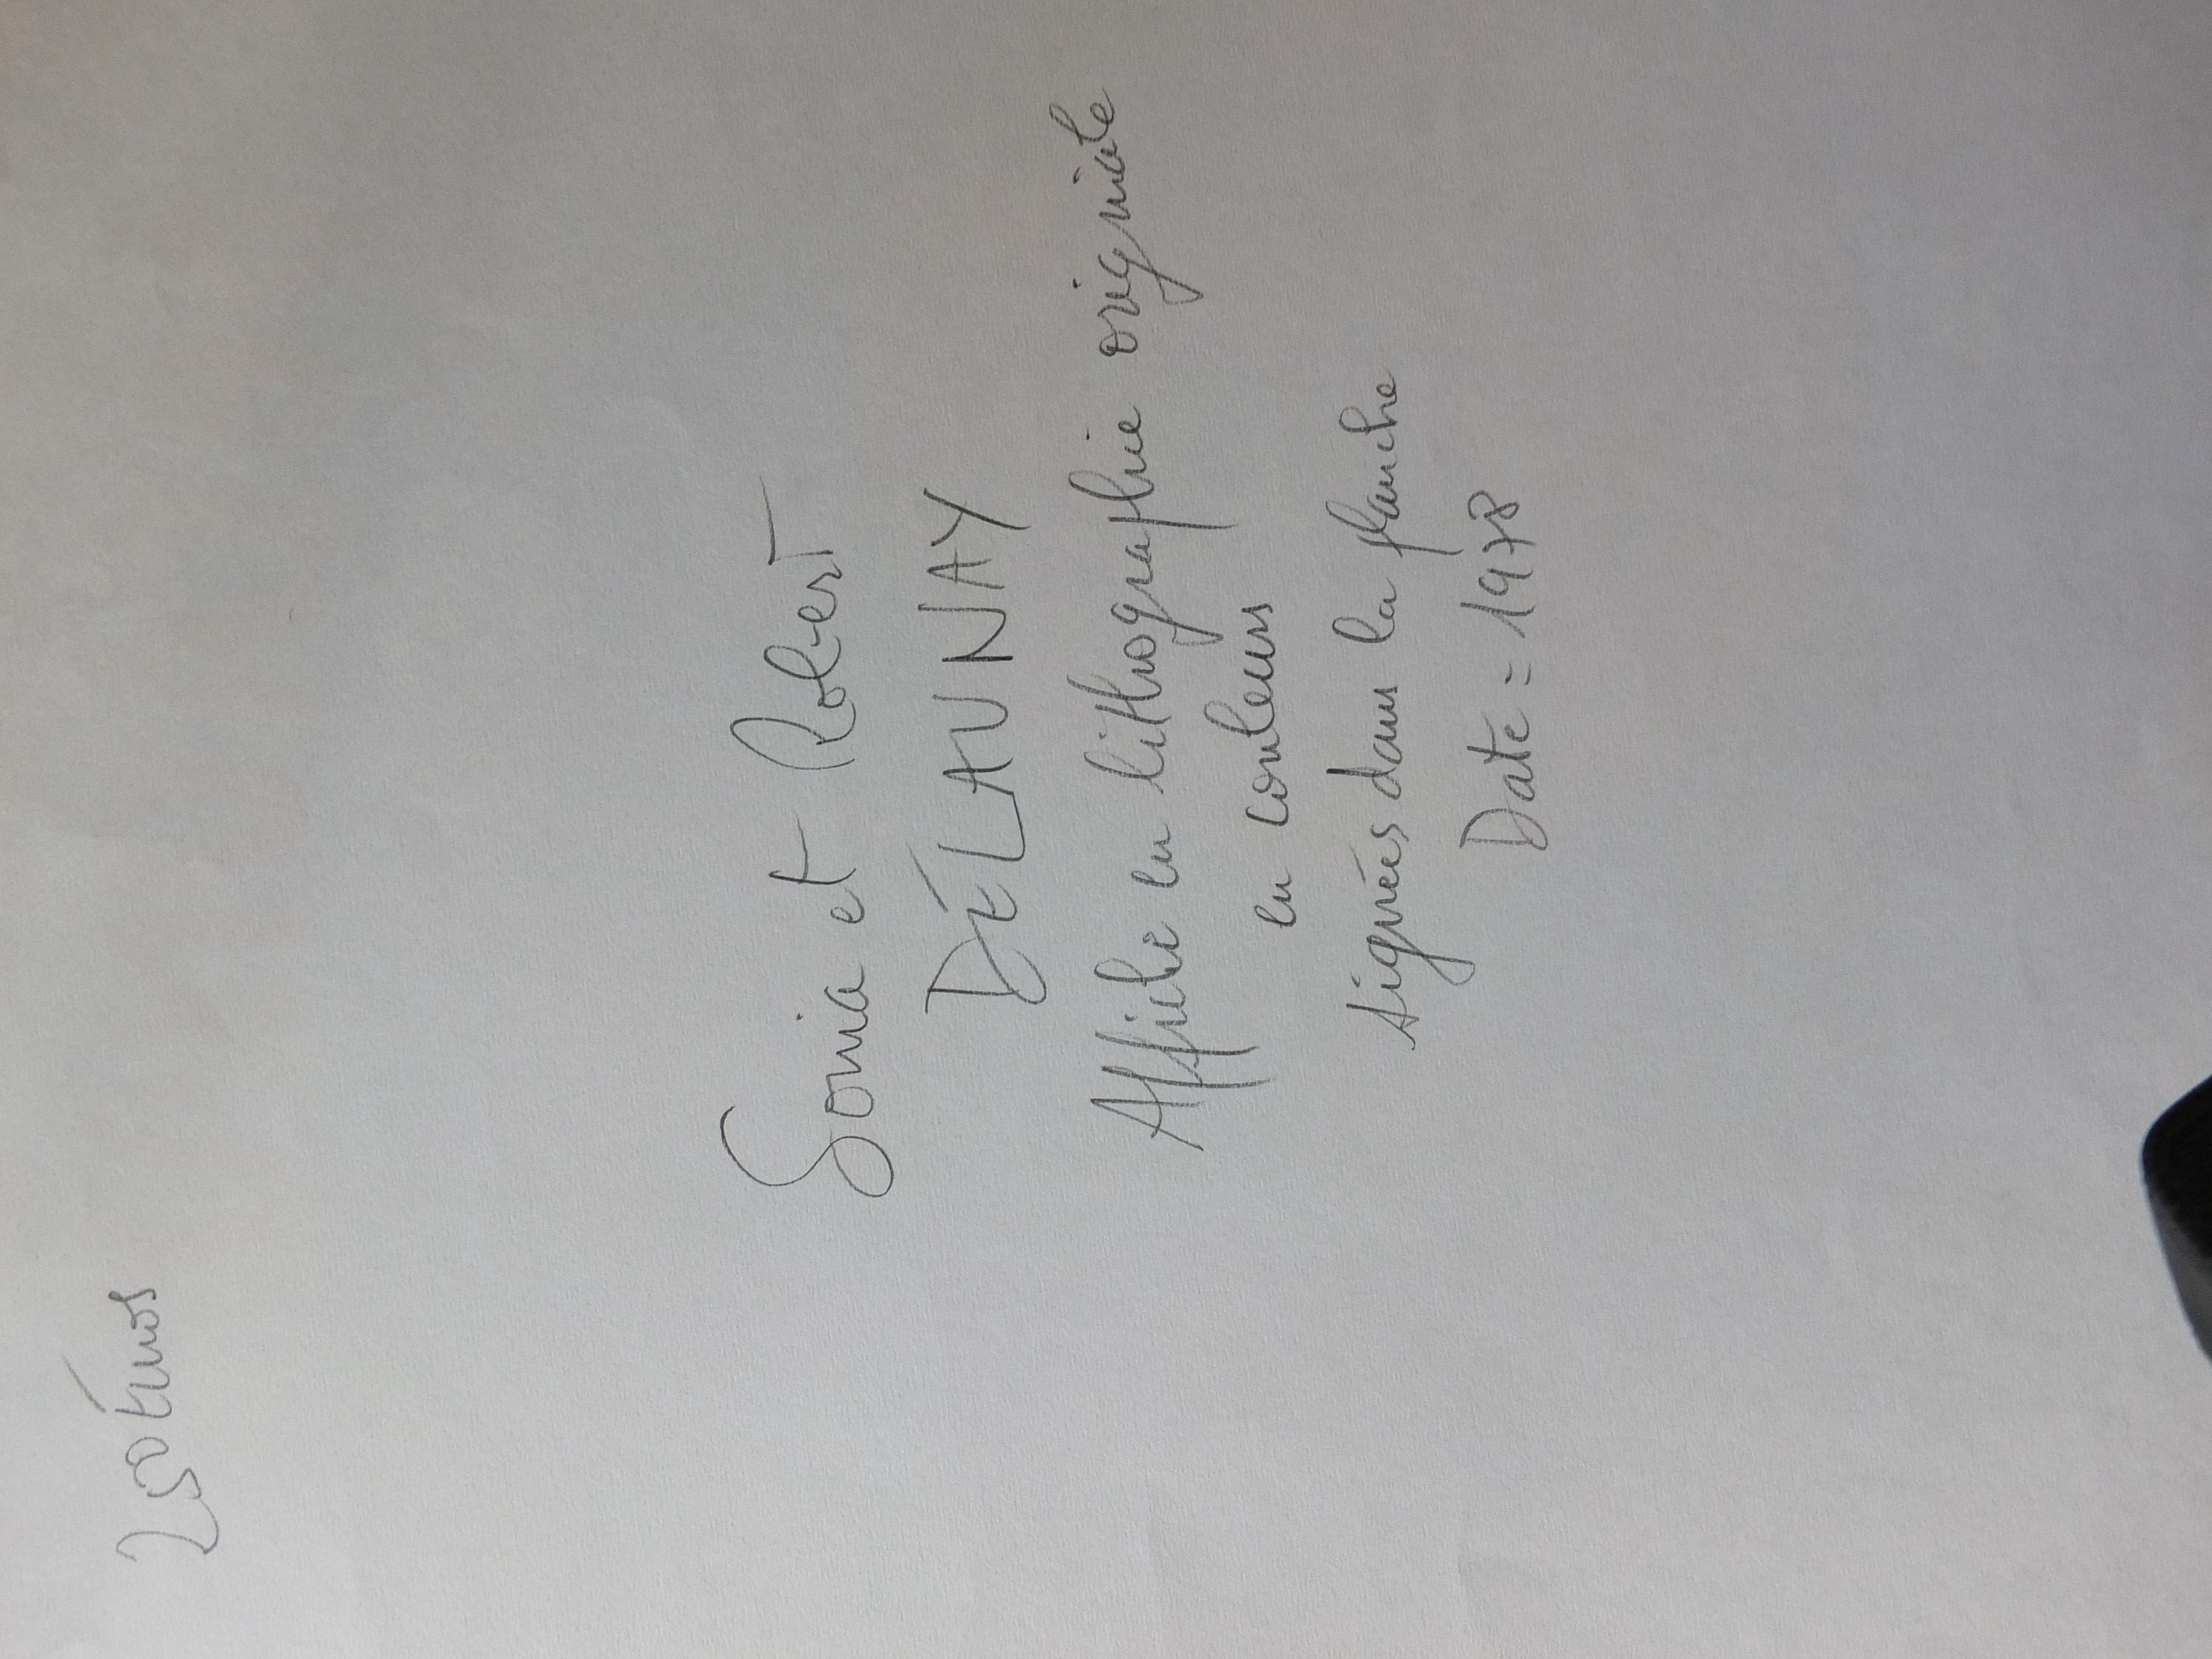 250 Euros
Sonia et Robert
DÉLAUNAY
Affiche en lithographie originale
en couleurs
signées dans la planche
Date = 1978